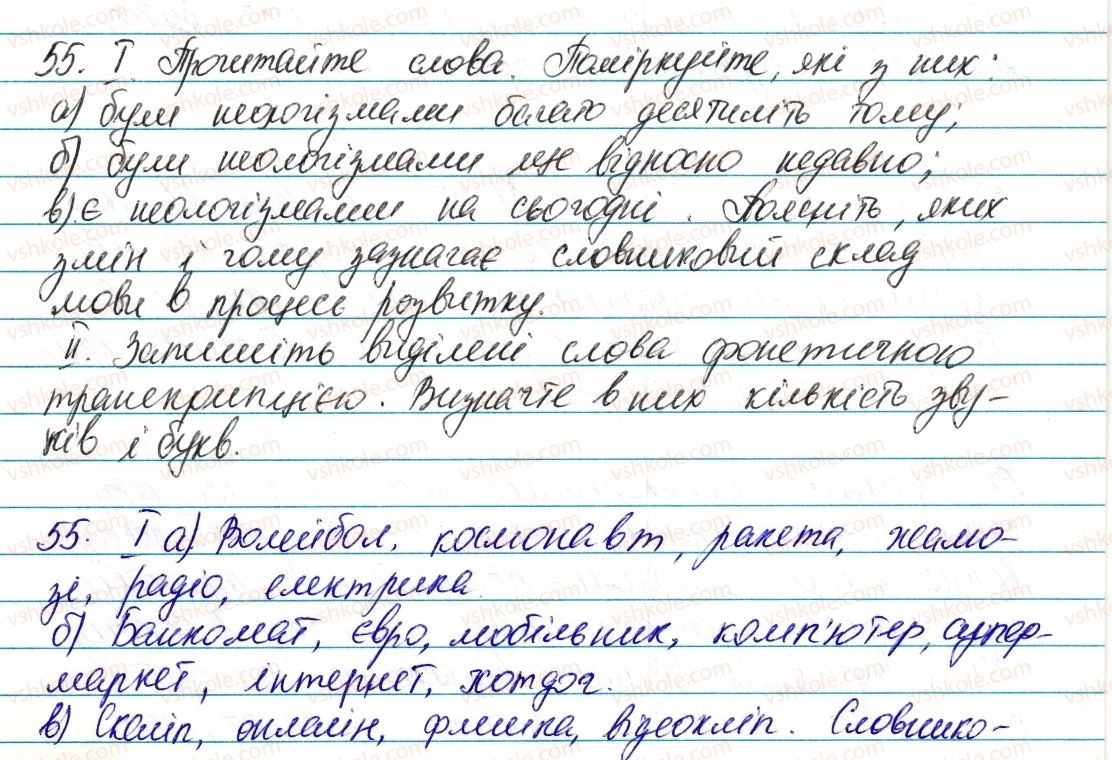 55. І. Прочитайте слова. Поміркуйте, які з них:
а) були неологізмами багато десятиліть тому;
б) були неологізмами ще відносно недавно;
в) є неологізмами на сьогодні. Поясніть, яких
змін і чому зазнагає словниковий склад
мови в процесі розвитку.
ІІ. Запишіть виділені слова фонетичною
транскрипцією. Визначте в них кількість зву-
ків і букв.
55. І а) Волейбол, космонавт, ракета, жалю-
зі, радіо, електрика.
б) Банкомат, євро, мобільник, комп'ютер, супер-
маркет, інтернет, хотдог.
в) Скайп, онлайн, флешка, відеокліп. Словнико-